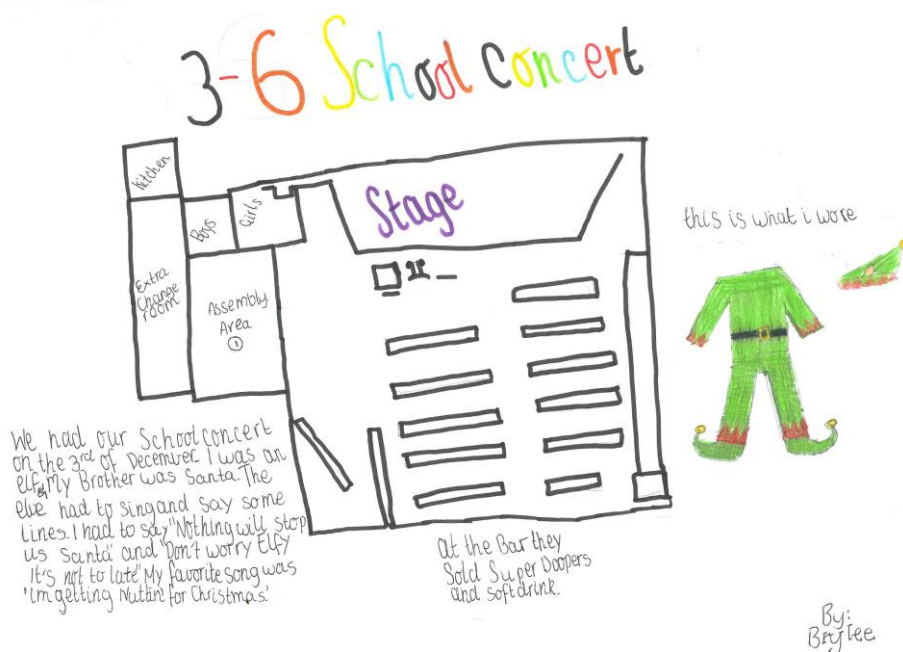 3-6 School Concert
Kitchen
Boys
Girls
Stage
this is what i wore
Extra
Change
room
Assembly
Area
①
We had our School concert
on the 3rd of December I was an
elf & My Brother was Santa. The
elve had to sing and say some
lines. I had to say "Nothing will stop
us Santa" and "Don't worry Elfy
It's not to late" My favorite song was
'Im getting Nuttin for Christmas.'
at the Bar they
Sold Super Doopers
and soft drink.
By:
Brylee